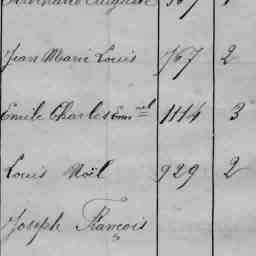 Ferdinand Auguste
Jean Marie Louis 767 2
Emile Charles Emnel 1114 3
Louis Noël 929 2
Joseph François